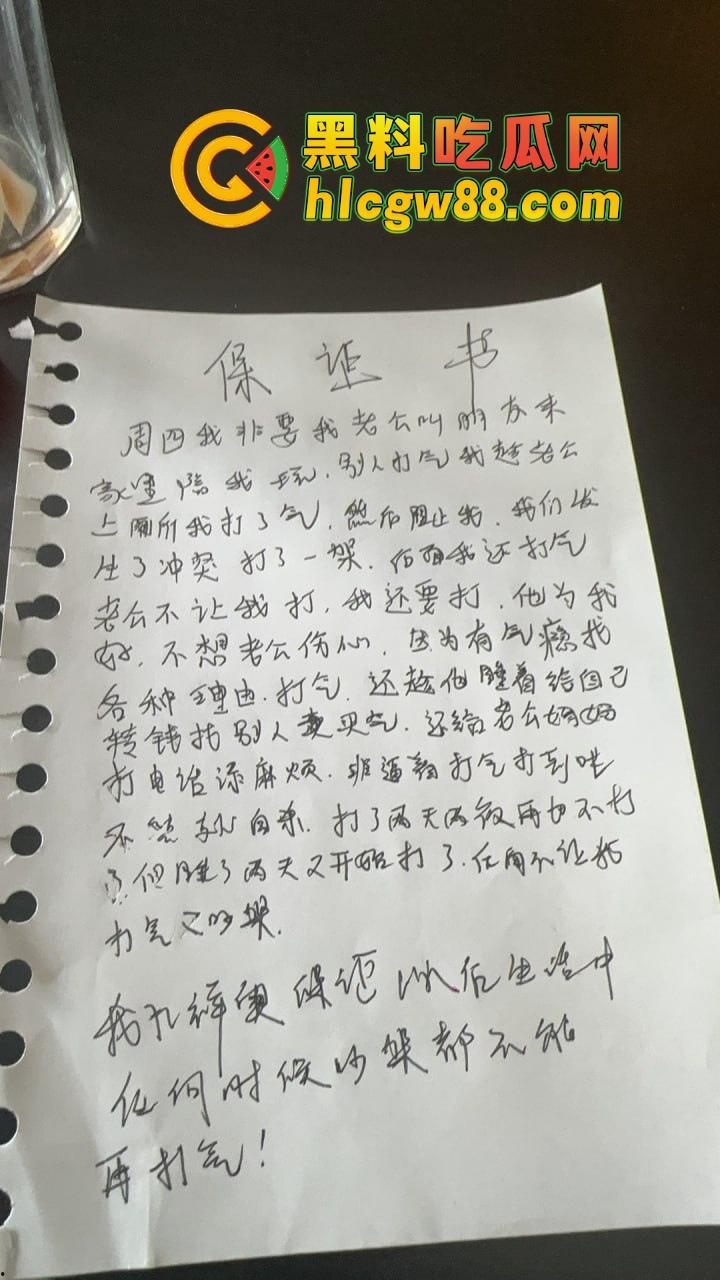 黑料吃瓜网
hlcgw88.com
保证书
周四我非要我老公叫朋友来
家里陪我玩，别人打气我趁老公
上厕所我打了气，然后阻止我，我们发
生了冲突打了一架，后面我还打气
老公不让我打，我还要打，他为我
好，不想老公伤心，因为有气瘾找
各种理由打气，还趁他睡着给自己
转钱找别人买气，还给老公妈妈
打电话添麻烦，非逼着打气打到
不然就自杀，打了两天两夜再也不打
了但睡了两天又开始打了，不让我
打气又吵架.
我孔祥 保证以后生活中
任何时候吵架都不能
再打气！